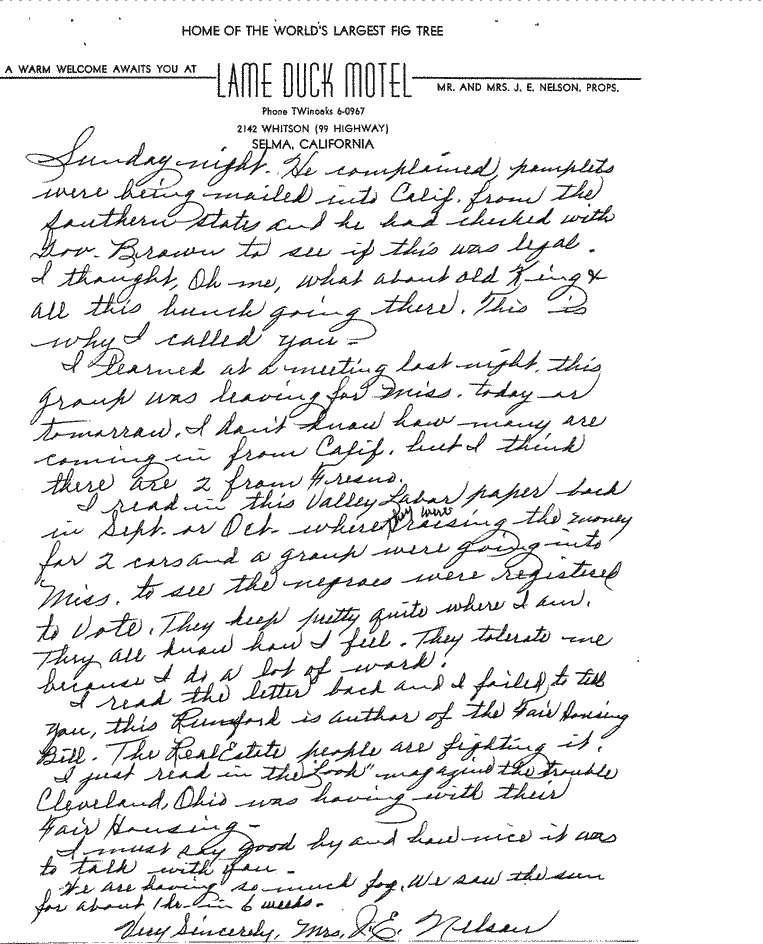 HOME OF THE WORLD'S LARGEST FIG TREE
A WARM WELCOME AWAITS YOU AT
LAME DUCK MOTEL
MR. AND MRS. J. E. NELSON, PROPS.
Phone TWinoaks 6-0967
2142 WHITSON (99 HIGHWAY)
SELMA, CALIFORNIA
Sunday night. He complained, pamplets
were being mailed into Calif. from the
Southern States and he had checked with
Gov. Brown to see if this was legal.
I thought, Oh me, what about old King &
all this bunch going there. This is
why I called you -
I learned at a meeting last night, this
group was leaving for Miss. today or
tomorrow. I don't know how many are
coming in from Calif. but I think
there are 2 from Fresno.
I read in this Valley Labor paper back
in Sept. or Oct. where they were raising the money
for 2 cars and a group were going into
Miss. to see the negroes were registered
to Vote. They keep pretty quite where I am.
They all know how I feel. They tolerate me
because I do a lot of work.
I read the letter back and I failed to tell
you, this Rumford is author of the Fair Housing
Bill. The Real Estate people are fighting it.
I just read in the "Look" magazine the trouble
Cleveland, Ohio was having with their
Fair Housing -
I must say good by and how nice it was
to talk with you -
We are having so much fog. We saw the sun
for about 1 hr. in 6 weeks.
Very Sincerely, Mrs. J. E. Nelson